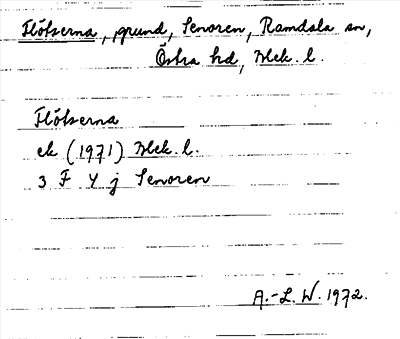 Flötserna, grund, Senoren, Ramdala sn,
Östra hd, Blek. l.
Flötserna
ek (1971) Blek. l.
3 F 4 j Senoren
A.-L. W. 1972.